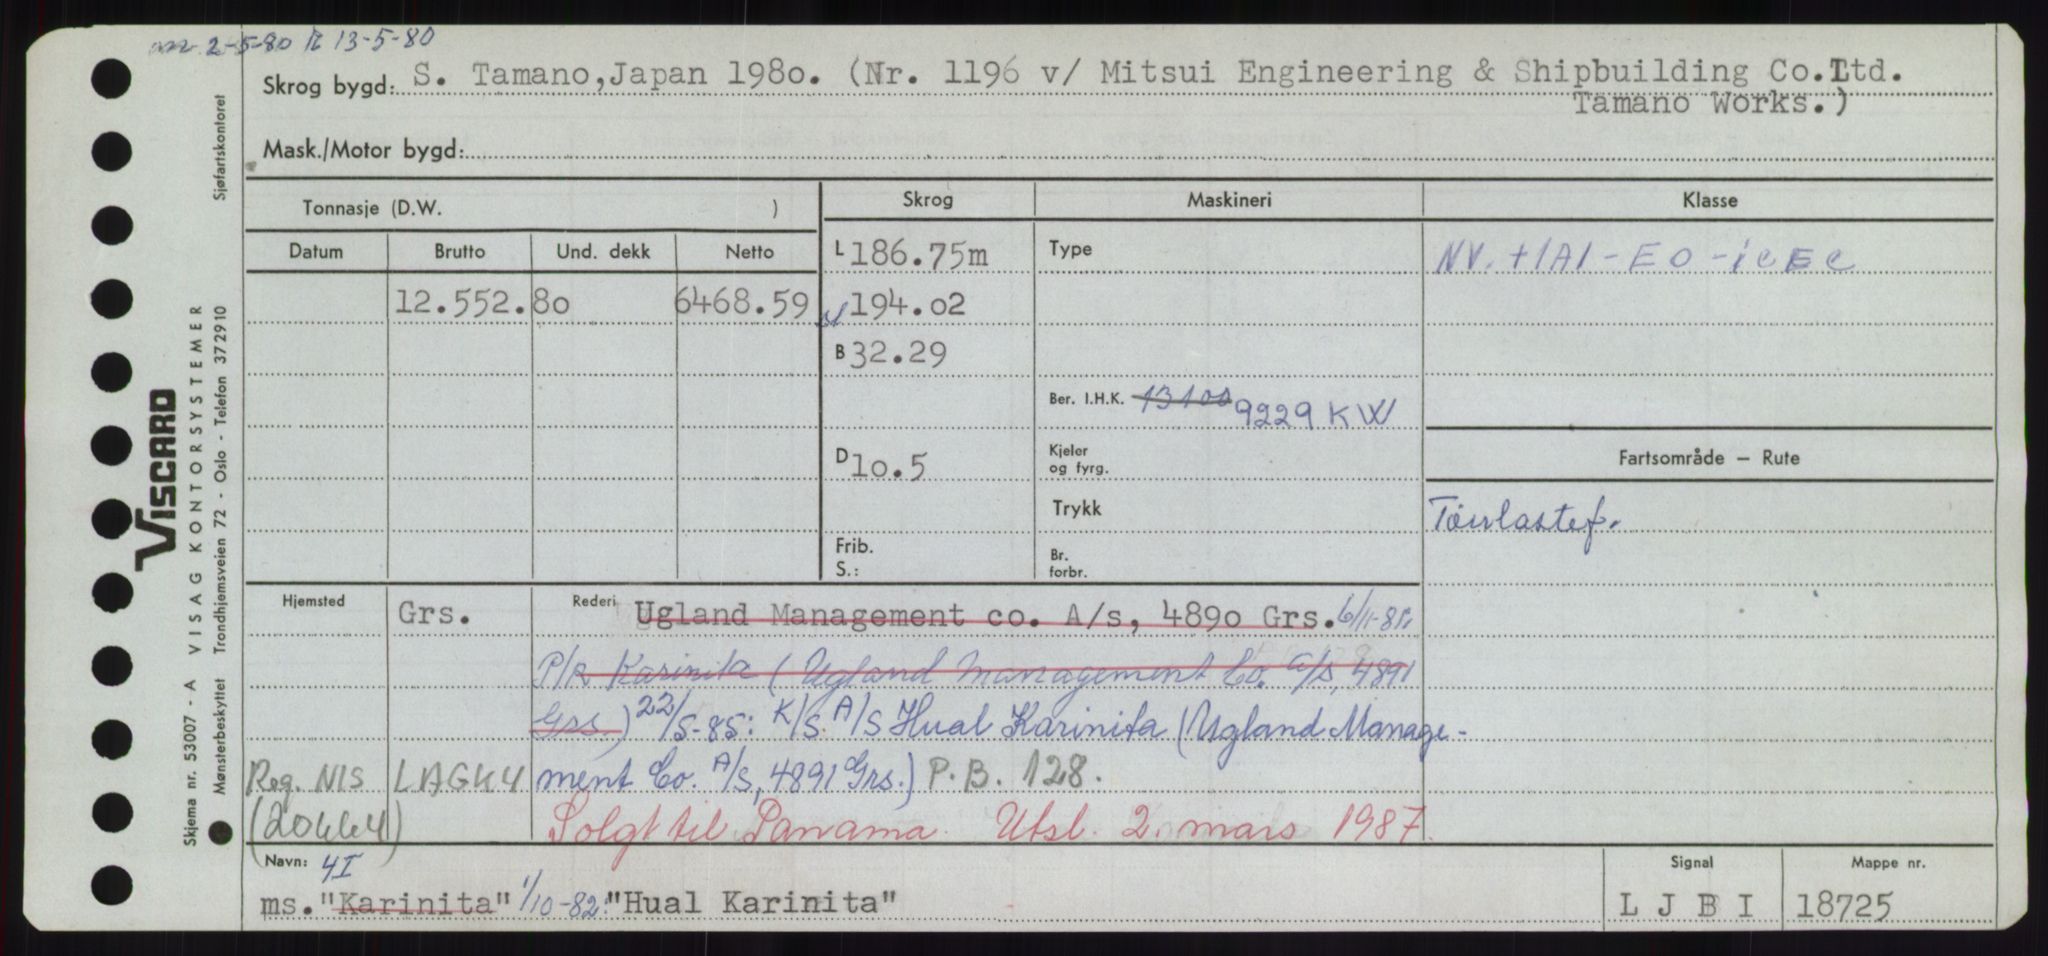 2-5-80 R 13-5-80
Skrog bygd: S. Tamano, Japan 198o. (Nr. 1196 v/ Mitsui Engineering & Shipbuilding Co.Ltd.
Tamano Works.)
Mask./Motor bygd:
Tonnasje (D.W. ) Skrog Maskineri Klasse
Datum Brutto Und. dekk Netto L 186.75m Type NV. +1A1-EO-ICE C
12.552.8o 6468.59 194.o2
B 32.29
Ber. I.H.K. 13100 9229 KW
D 1o.5 Kjeler og fyrg. Fartsområde – Rute
Trykk Tørrlastef.
Frib. S.: Br. forbr.
Hjemsted Grs. Rederi Ugland Management co. A/s, 489o Grs. 6/11-81:
P/R Karinita (Ugland Management Co. A/S, 4891
Grs) 22/5-85: K/S A/S Hual Karinita (Ugland Manage-
Reg. NIS LAGK4 ment Co. A/S, 4891 Grs.) P.B. 128.
Solgt til Panama. Utsl. 2. mars 1987.
Navn: 4I Signal Mappe nr.
ms. "Karinita" 1/10-82: "Hual Karinita" L J B I 18725
VISCARD
Skjema nr. 53007 - A VISAG KONTORSYSTEMER
Mønsterbeskyttet Trondhjemsveien 72 - Oslo - Telefon 372910 Sjøfartskontoret